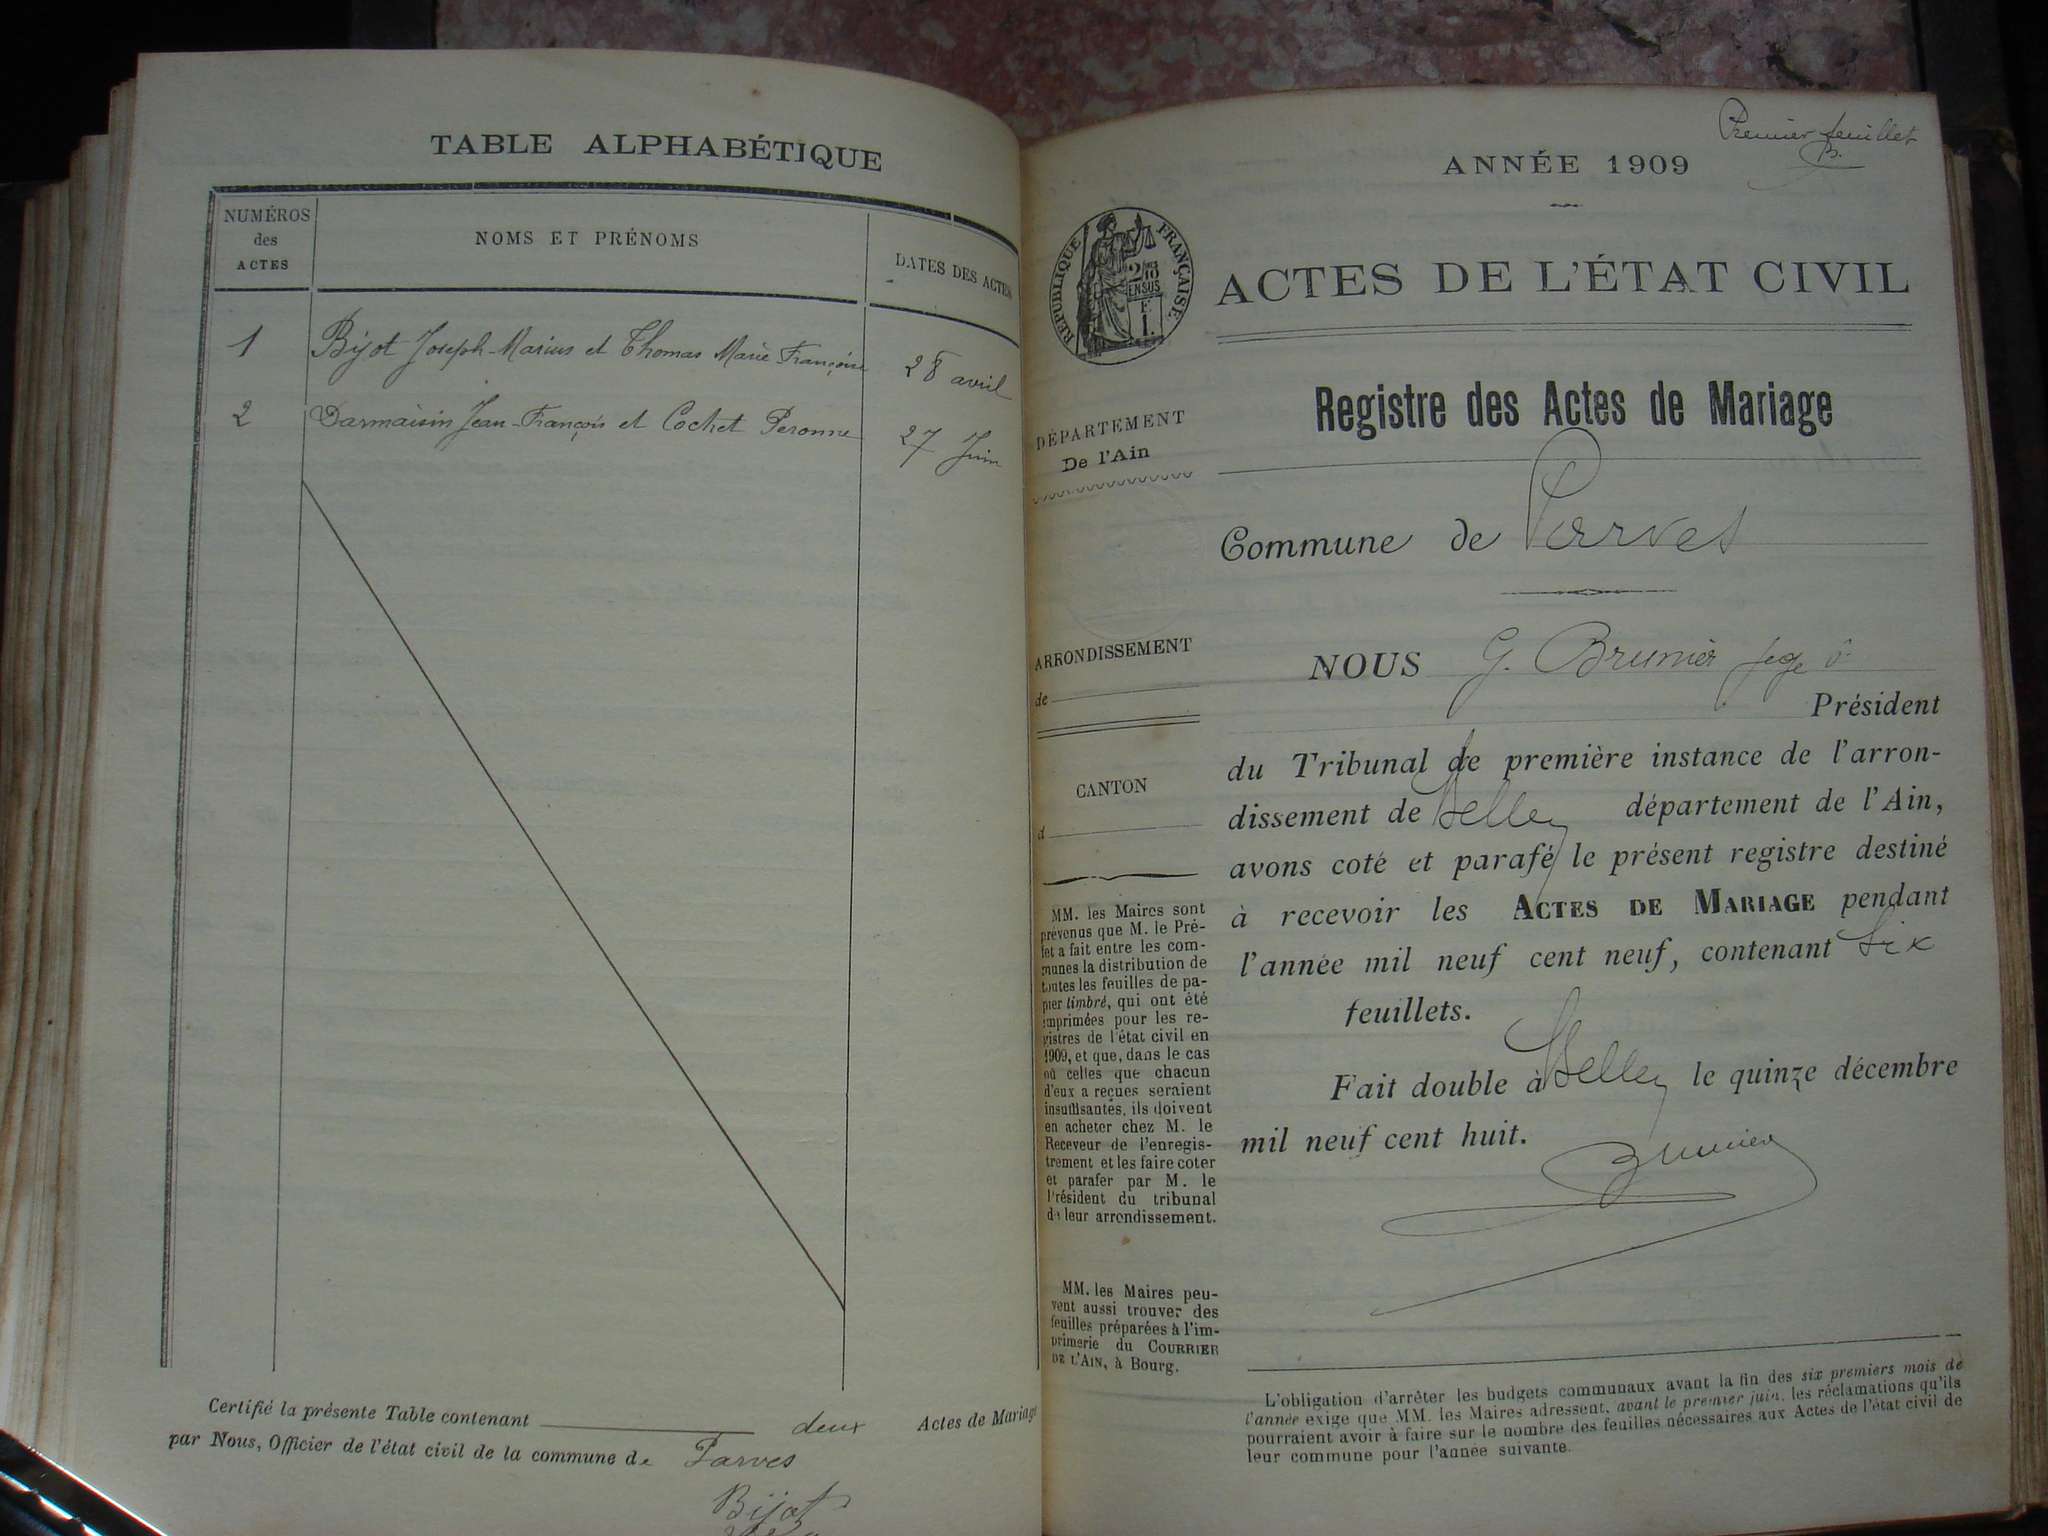 TABLE ALPHABÉTIQUE
NUMÉROS
des
ACTES
NOMS ET PRÉNOMS
DATES DES ACTES
1 Bijot Joseph-Marius et Thomas Marie Françoise 28 avril
2 Darmaisin Jean-François et Cochet Peronne 27 Juin
Certifié la présente Table contenant deux Actes de Mariage
par Nous, Officier de l'état civil de la commune de Parves
Bijot
Premier feuillet
B.
ANNÉE 1909
RÉPUBLIQUE FRANÇAISE
2/10
EN SUS
F
1.
ACTES DE L'ÉTAT CIVIL
Registre des Actes de Mariage
DÉPARTEMENT
De l'Ain
Commune de Parves
ARRONDISSEMENT
de
CANTON
d
NOUS G. Brunier juge
Président
du Tribunal de première instance de l'arron-
dissement de Belley département de l'Ain,
avons coté et parafé le présent registre destiné
à recevoir les ACTES DE MARIAGE pendant
l'année mil neuf cent neuf, contenant Six
feuillets.
Fait double à Belley le quinze décembre
mil neuf cent huit.
Brunier
MM. les Maires sont
prévenus que M. le Pré-
fet a fait entre les com-
munes la distribution de
toutes les feuilles de pa-
pier timbré, qui ont été
imprimées pour les re-
gistres de l'état civil en
1909, et que, dans le cas
où celles que chacun
d'eux a reçues seraient
insuffisantes, ils doivent
en acheter chez M. le
Receveur de l'enregis-
trement et les faire coter
et parafer par M. le
Président du tribunal
de leur arrondissement.
MM. les Maires peu-
vent aussi trouver des
feuilles préparées à l'im-
primerie du COURRIER
DE L'AIN, à Bourg.
L'obligation d'arrêter les budgets communaux avant la fin des six premiers mois de
l'année exige que MM. les Maires adressent, avant le premier juin, les réclamations qu'ils
pourraient avoir à faire sur le nombre des feuilles nécessaires aux Actes de l'état civil de
leur commune pour l'année suivante.